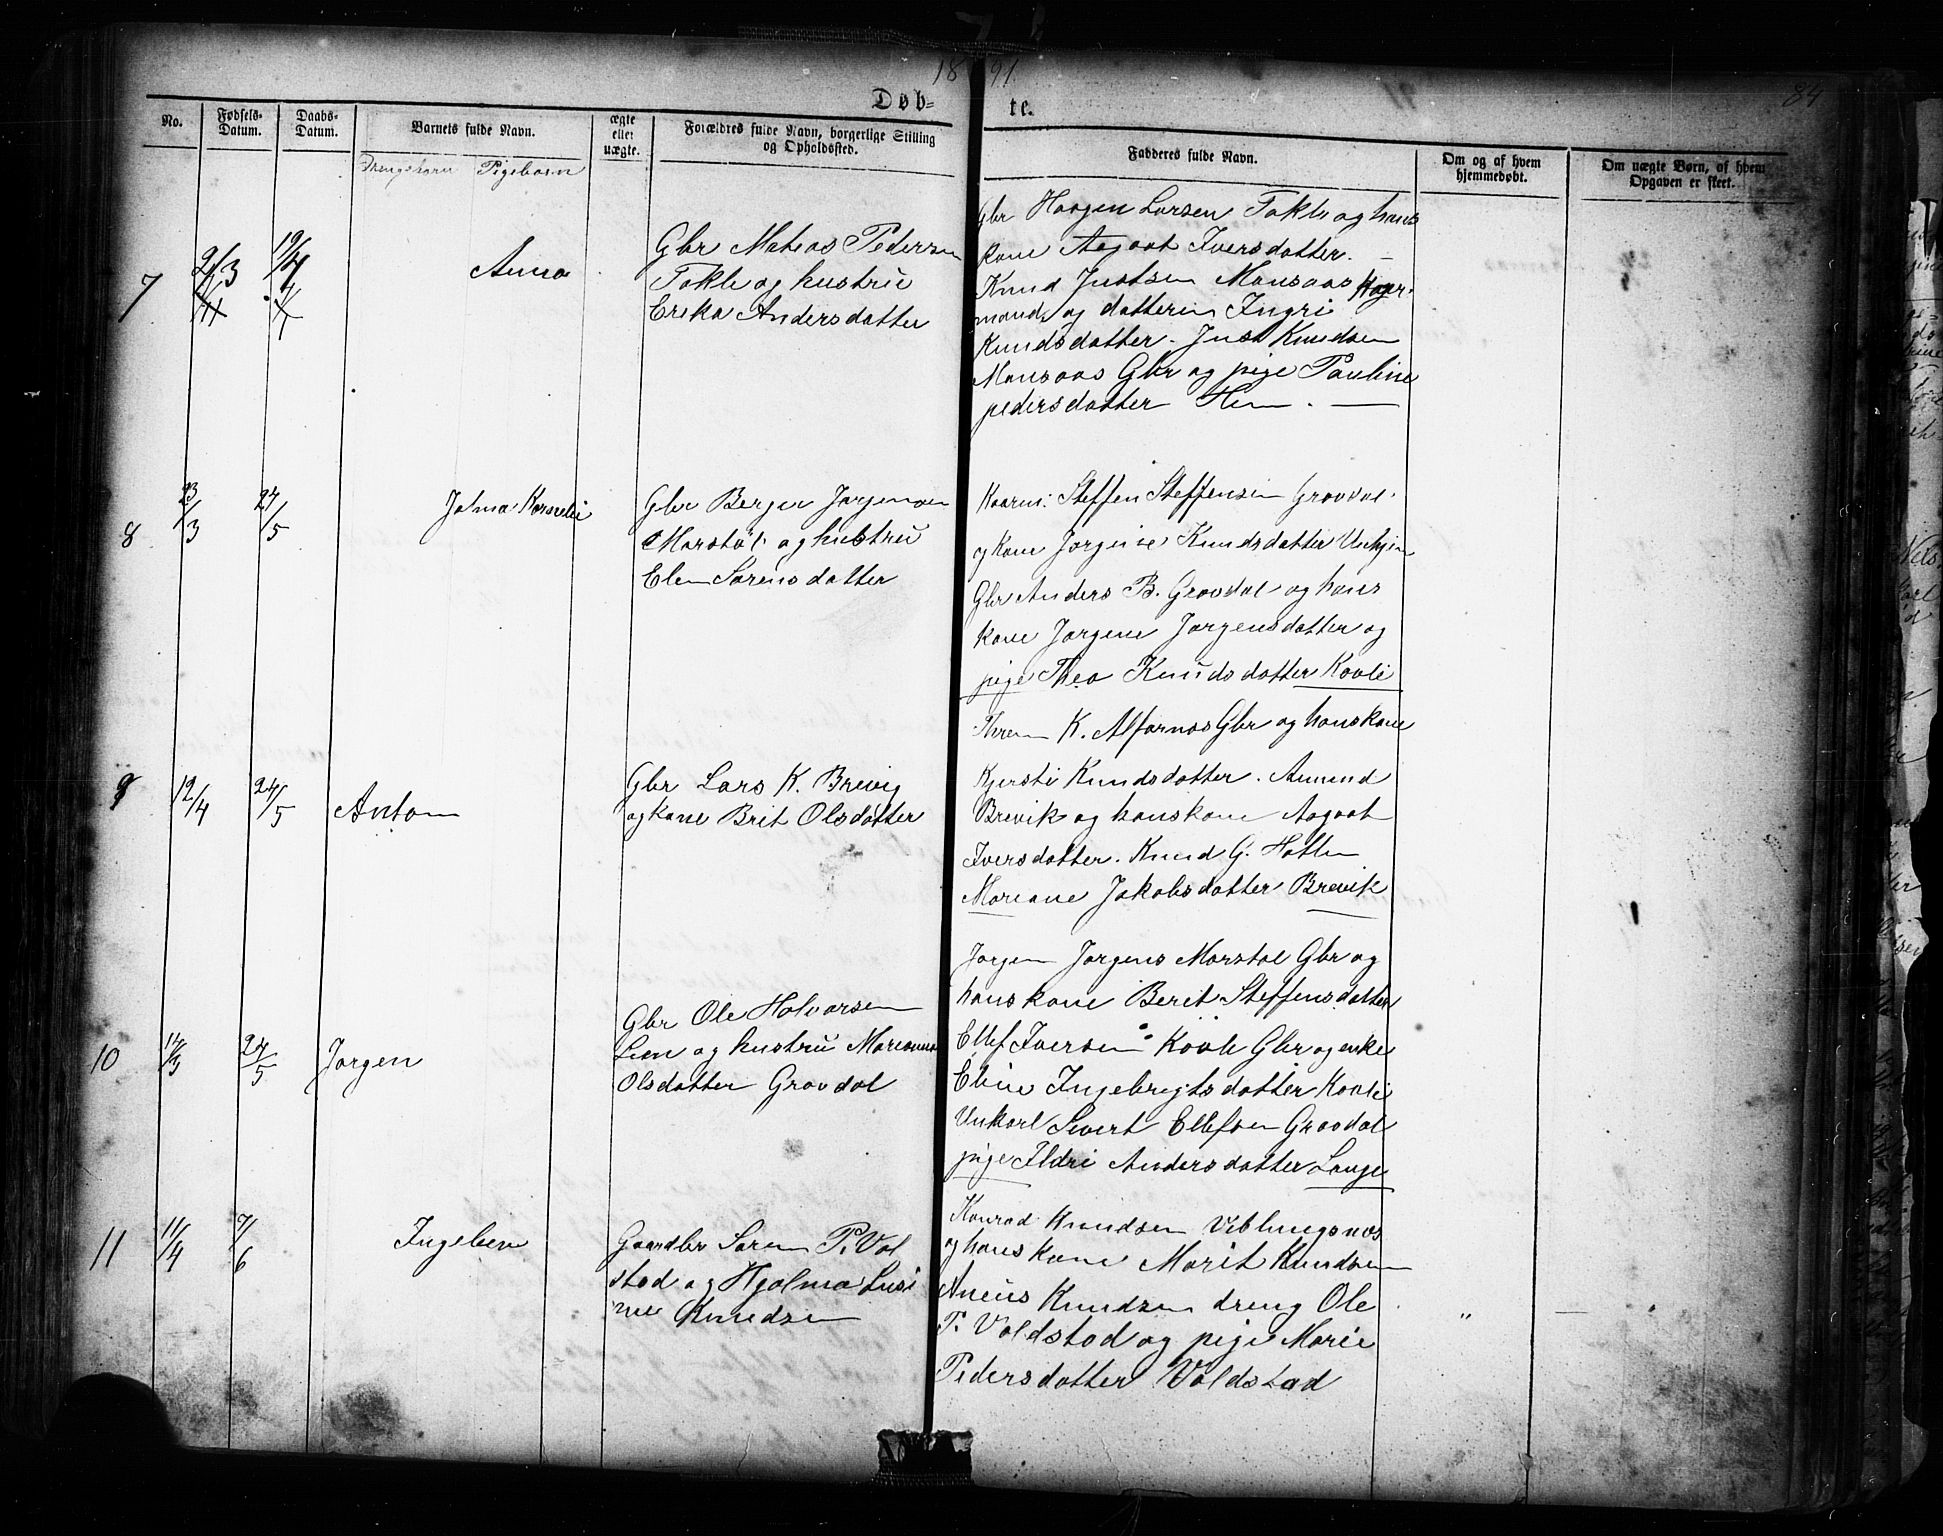 1891.
84
Døb- te.
No.
Fødsels-Datum.
Daabs-Datum.
Barnets fulde Navn.
ægte eller uægte.
Forældres fulde Navn, borgerlige Stilling og Opholdssted.
Fadderes fulde Navn.
Om og af hvem hjemmedøbt.
Om uægte Børn, af hvem Opgaven er skeet.
Drengebarn Pigebarn
7
2/3
19/4
Anna
Gbr Matias Pedersen
Tokle og hustru
Erika Andersdatter
Gbr Haagen Larsen Tokle og hans
kone Aagaat Iversdatter.
Knud Justsen Monsaas Kaar-
mand og datteren Ingri
Knudsdatter. Just Knudsen
Monsaas Gbr og pige Pauline
pedersdatter Hem. —
8
23/3
24/5
Jalma
Gbr Berger Jørgensen
Morstøl og hustru
Elen Sørensdatter
Kaarm: Steffen Steffensen Grovdal.
og kone Jørgine Knudsdatter
Gbr Anders B. Grovdal og hans
kone Jørgine Jørgensdatter og
pige Thea Knudsdatter Kavli
9
12/4
24/5
Anton
Gbr Lars K. Brevig
og kone Brit Olsdatter
K. Alfarnas Gbr og hans kone
Kjersti Knudsdatter. Amund
Brevik og hans kone Aagaat
Iversdatter. Knud G. Hatlen
Mariane Jakobsdatter Brevik
10
24/5
Jørgen
Gbr Ole Halvorsen
Lien og hustru Marianna
Olsdatter Grovdal
Jørgen Jørgens Morstøl Gbr og
hans kone Berit Steffensdatter
Ellef Iversen Kavli Gbr og enke
Eline Ingebrigtsdatter Kavli
Unkarl Sivert Ellefsen Grovdal
pige Ildri Andersdatter Lange
11
11/4
7/6
Ingeline
Gaardbr Søren P. Vol
stad og Hjalma Lusi
ne Knudsen
Konrad Knudsen Veblungsnæs
og hans kone Marit Knudsen
Aneus Knudsen dreng Ole
P. Voldstad og pige Marie
Pedersdatter Voldstad
" —